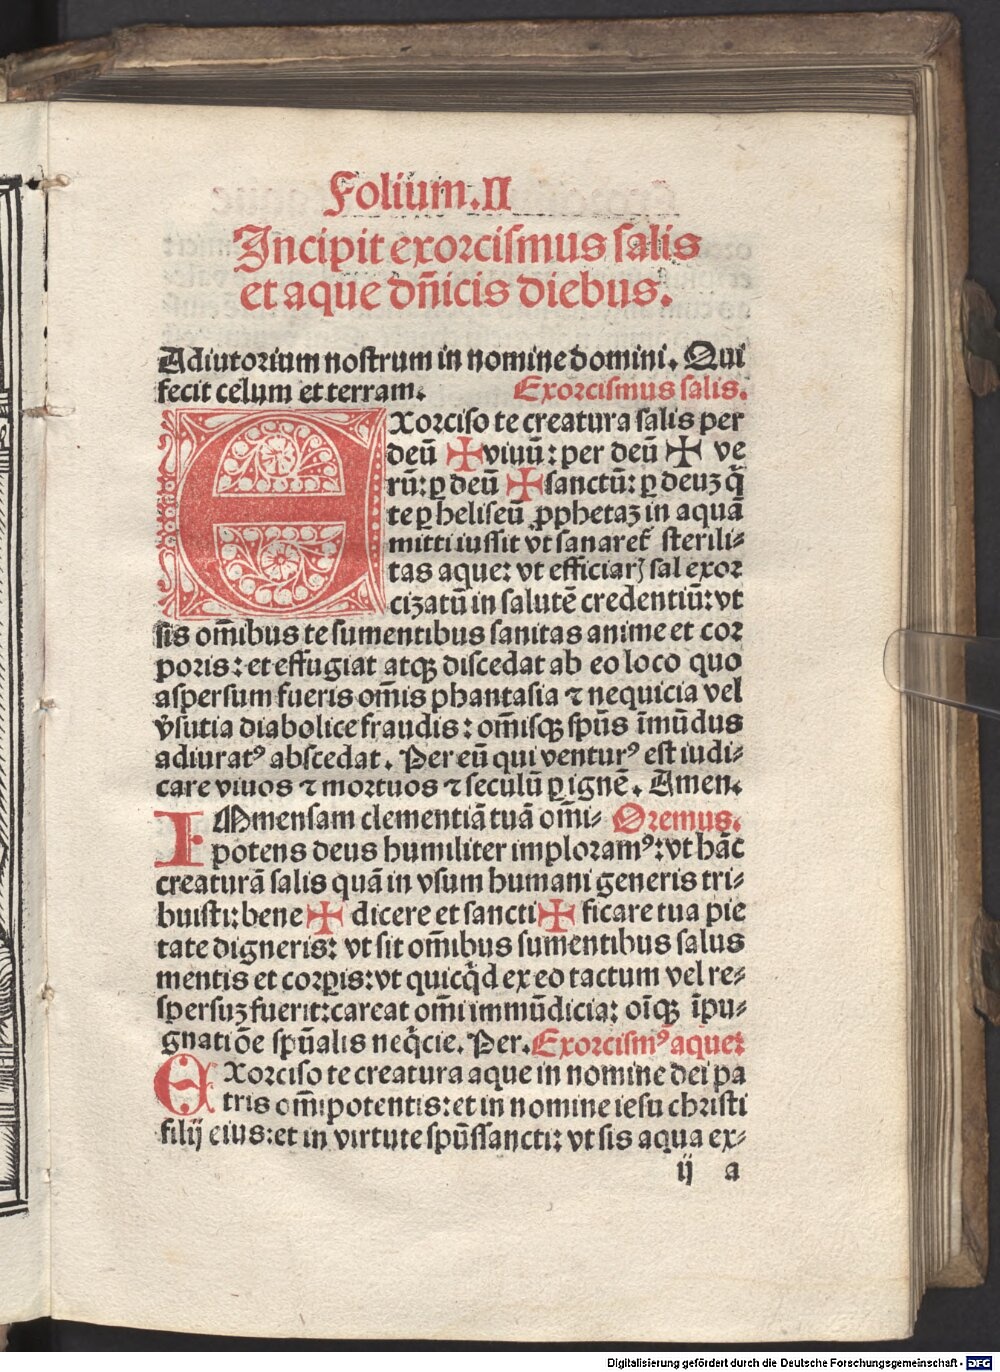 Folium.II
Incipit exorcismus salis
et aque dn̄icis diebus.
Adiutorium nostrum in nomine domini. Qui
fecit celum et terram. Exorcismus salis.
EXorciso te creatura salis per
deū ✠ viuū: per deū ✠ ve
rū: ꝑ deū ✠ sanctū: ꝑ deuꝫ q̄
te ꝑ heliseū ꝓphetaꝫ in aquā
mitti iussit vt sanaret᷑ sterili⸗
tas aque: vt efficiarꝭ sal exor
cizatū in salutē credentiū: vt
sis om̄ibus te sumentibus sanitas anime et cor
poris: et effugiat atqꝫ discedat ab eo loco quo
aspersum fueris om̄is phantasia ⁊ nequicia vel
v̓sutia diabolice fraudis: om̄isqꝫ spūs īmūdus
adiuratꝰ abscedat. Per eū qui venturꝰ est iudi⸗
care viuos ⁊ mortuos ⁊ seculū ꝑ ignē. Amen.
IMmensam clementiā tuā om̄i⸗ Oremus.
potens deus humiliter imploramꝰ: vt hāc
creaturā salis quā in vsum humani generis tri⸗
buisti: bene ✠ dicere et sancti ✠ ficare tua pie
tate digneris: vt sit om̄ibus sumentibus salus
mentis et corꝑis: vt quicq̄d ex eo tactum vel re⸗
spersuꝫ fuerit: careat om̄i immūdicia: oīqꝫ īpu⸗
gnatiōe spūalis neq̄cie. Per. Exorcismꝰ aque:
EXorciso te creatura aque in nomine dei pa
tris om̄ipotentis: et in nomine iesu christi
filij eius: et in virtute spūssancti: vt sis aqua ex⸗
ij a
Digitalisierung gefördert durch die Deutsche Forschungsgemeinschaft - DFG